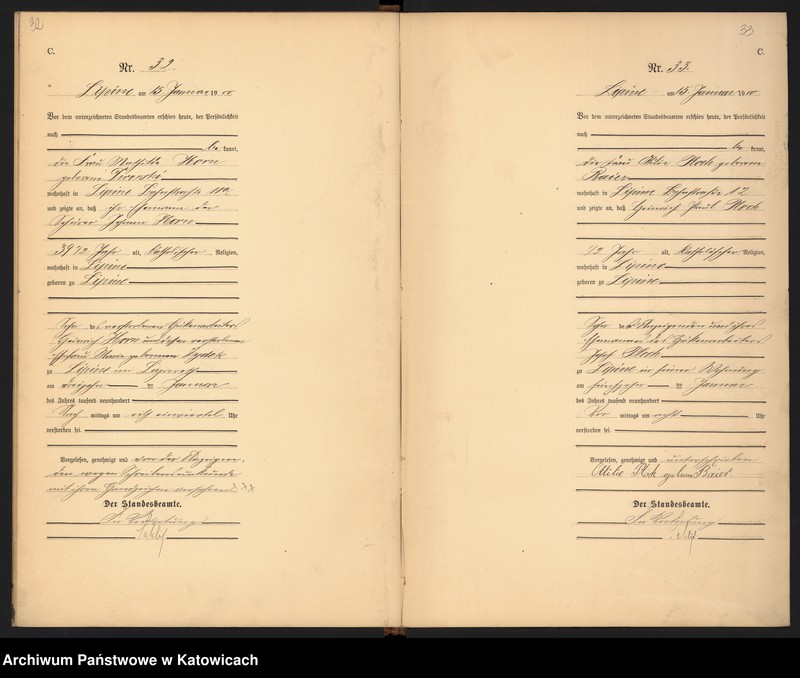 32
C.
Nr. 32.
Lipine am 15. Januar 1900
Vor dem unterzeichneten Standesbeamten erschien heute, der Persönlichkeit
nach
be kannt,
die Frau Mathilde Horn
geborene
wohnhaft in Lipine Bahnstraße 11a
und zeigte an, daß ihr Ehemann der
Johann Horn
39 1/2 Jahr alt, katholischer Religion,
wohnhaft in Lipine
geboren zu Lipine
Sohn des verstorbenen Hüttenarbeiters
Heinrich Horn und dessen verstorbenen
Ehefrau Marie geborenen
zu Lipine im Lazareth
am dreizehn ten Januar
des Jahres tausend neunhundert
Nach mittags um acht einviertel Uhr
verstorben sei.
Vorgelesen, genehmigt und von der Anzeigerin,
den wegen Schreibensunkunde
mit ihrem Handzeichen versehen XXX
Der Standesbeamte.
In Vertretung:
33
C.
Nr. 33.
Lipine am 15. Januar 1900
Vor dem unterzeichneten Standesbeamten erschien heute, der Persönlichkeit
nach
be kannt,
die Frau Ottilie Kloch geborene
Baier
wohnhaft in Lipine Bahnstraße 12
und zeigte an, daß Heinrich Paul Kloch
1/2 Jahr alt, katholischer Religion,
wohnhaft in Lipine
geboren zu Lipine
Sohn der Anzeigenden und ihres
Ehemannes des Hüttenarbeiters
Josef Kloch
zu Lipine in seiner Wohnung
am fünfzehn ten Januar
des Jahres tausend neunhundert
Vor mittags um acht Uhr
verstorben sei.
Vorgelesen, genehmigt und unterschrieben
geborn Baier
Der Standesbeamte.
In Vertretung:
Archiwum Państwowe w Katowicach